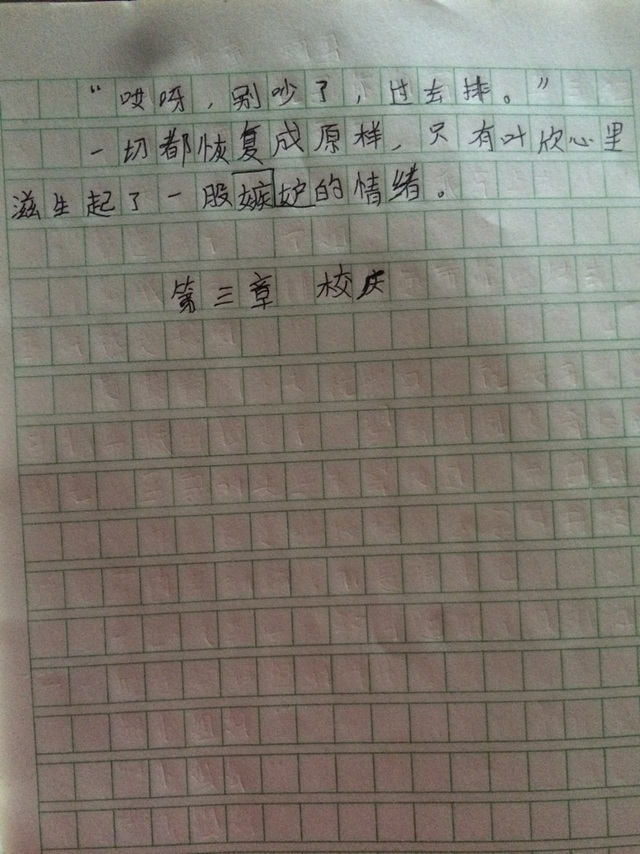 “哎呀，别吵了，过去排。”
一切都恢复成原样，只有叶欣心里
滋生起了一股嫉妒的情绪。
第三章 校庆